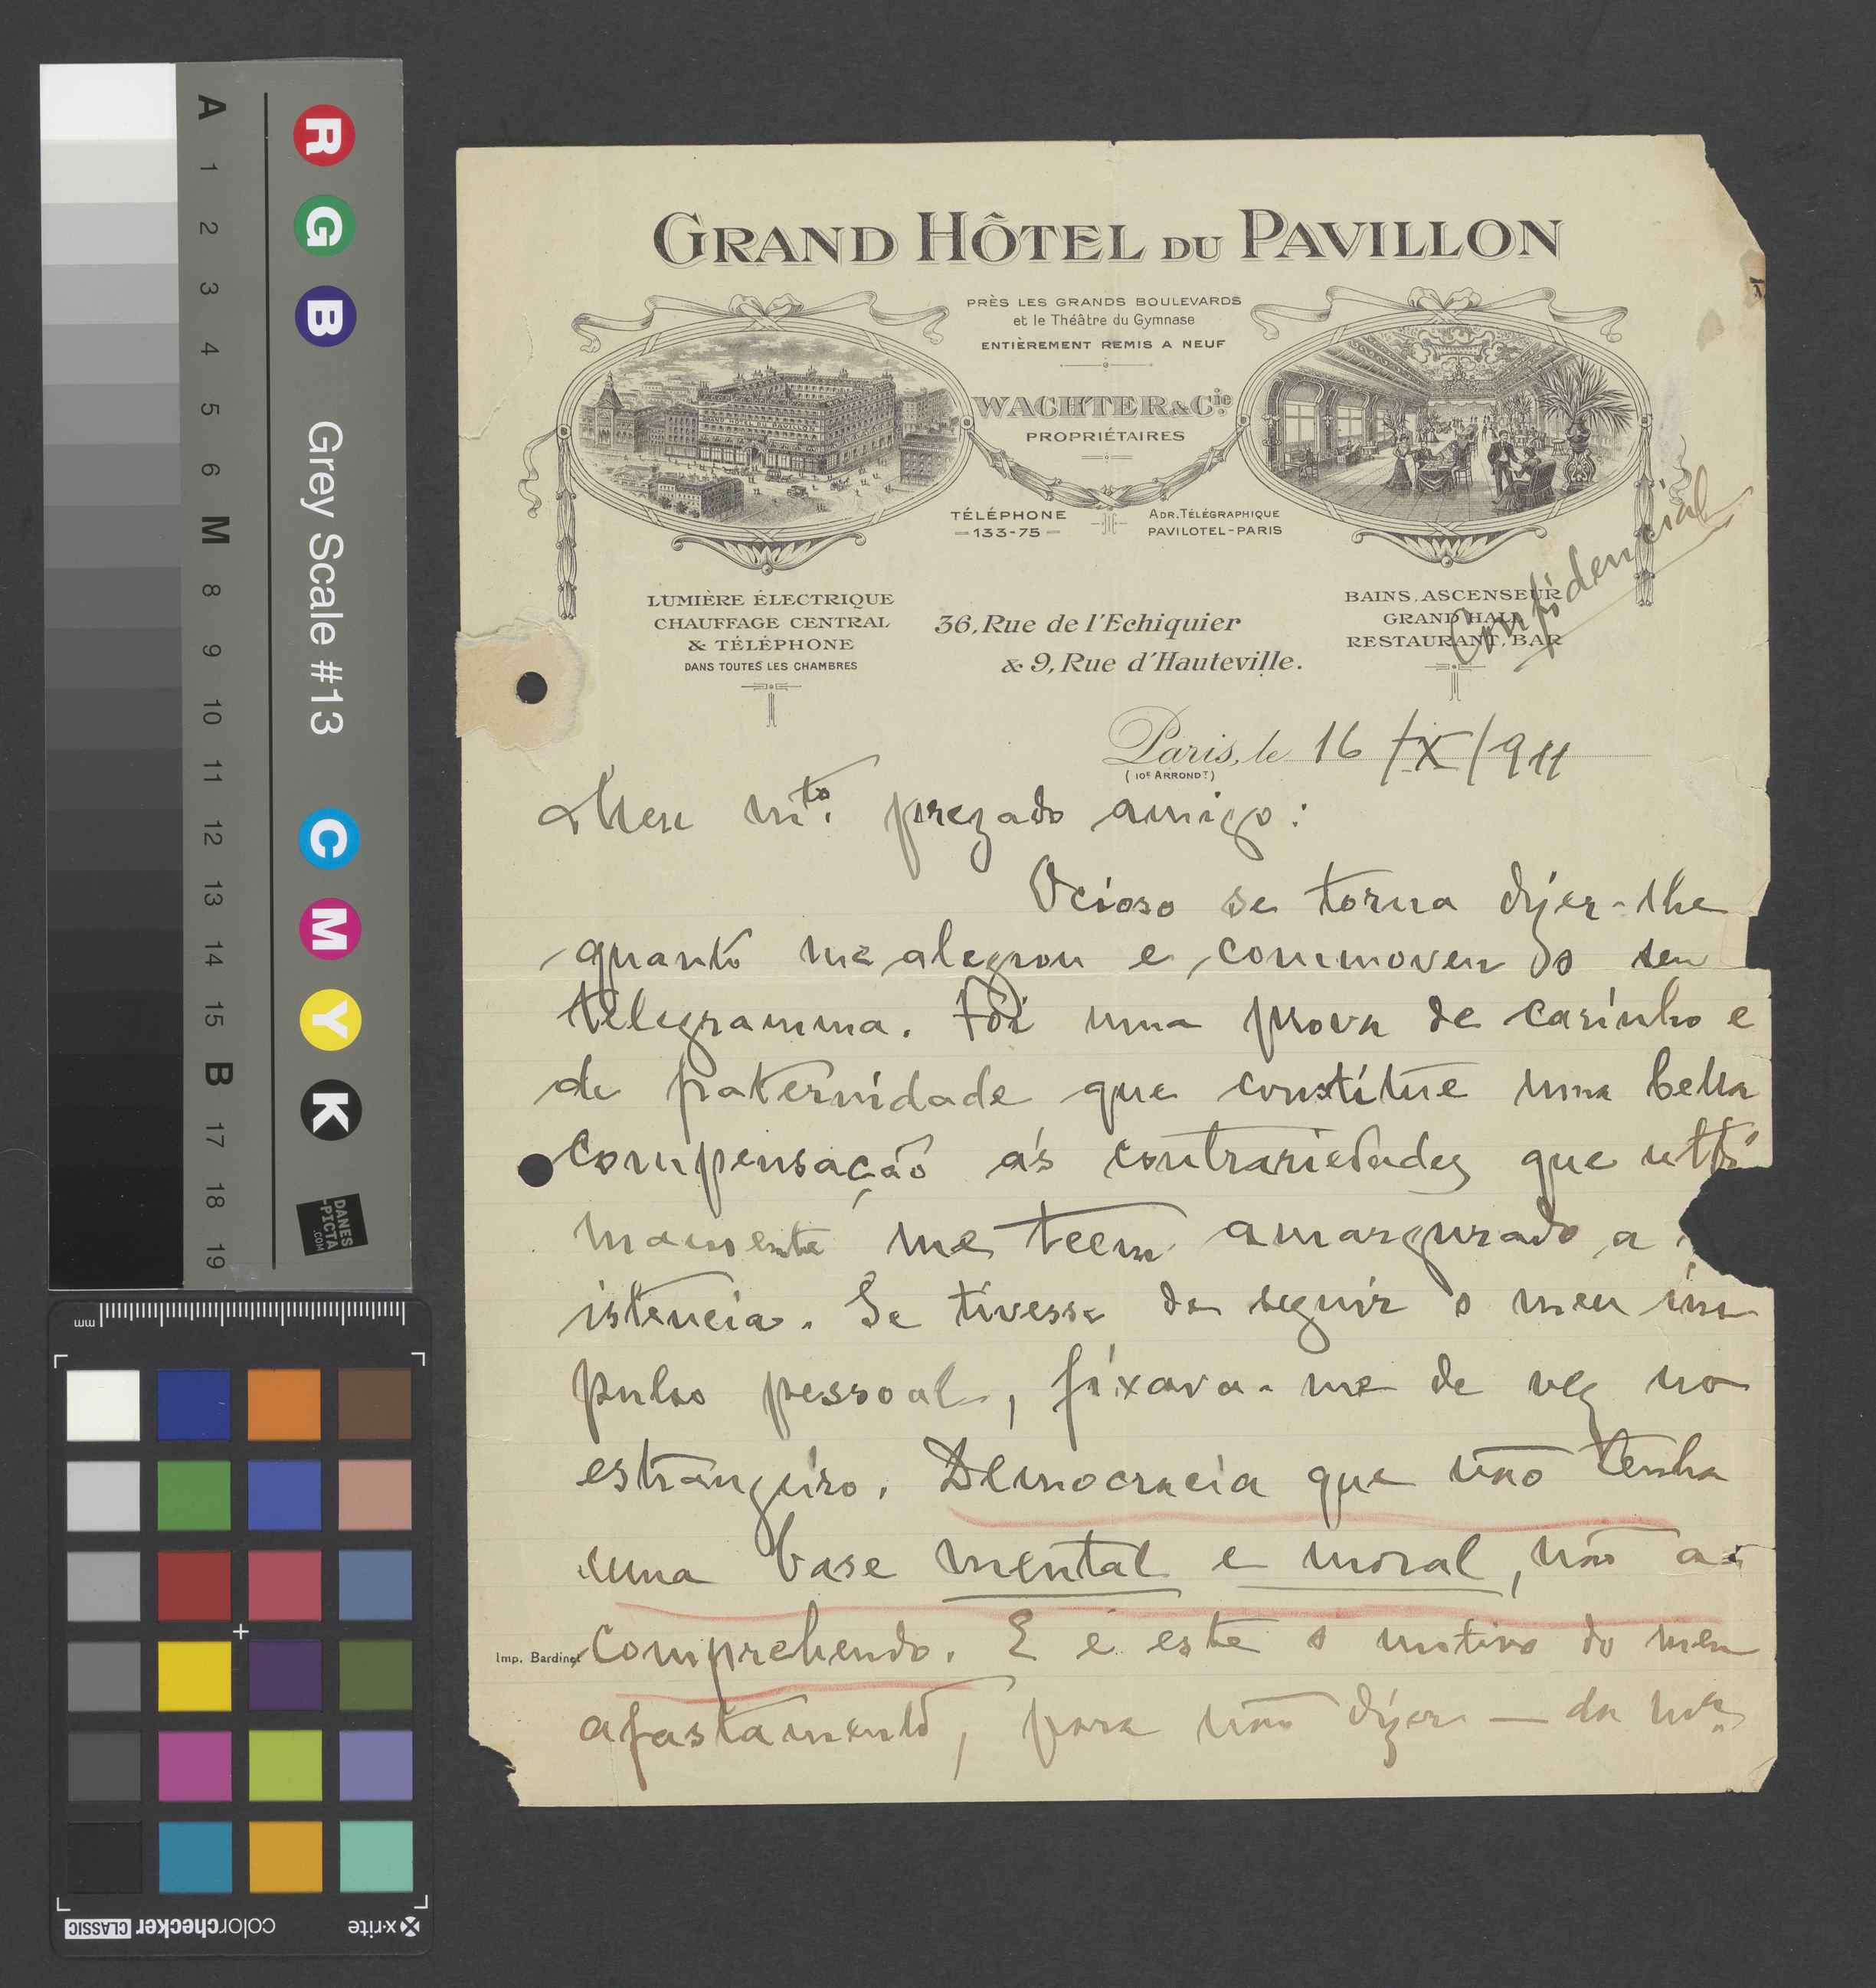 GRAND HÔTEL DU PAVILLON
PRÈS LES GRANDS BOULEVARDS
et le Théâtre du Gymnase
ENTIÈREMENT REMIS A NEUF
WACHTER & Cie.
PROPRIÉTAIRES
GRAND HOTEL DU PAVILLON
TÉLÉPHONE
— 133-75 —
ADR. TÉLÉGRAPHIQUE
PAVILOTEL-PARIS
LUMIÈRE ÉLECTRIQUE
CHAUFFAGE CENTRAL
& TÉLÉPHONE
DANS TOUTES LES CHAMBRES
36, Rue de l'Echiquier
& 9, Rue d'Hauteville.
BAINS, ASCENSEUR
GRAND HALL
RESTAURANT, BAR
Confidencial
Paris, le 16 /X/ 911
(10e ARRONDt)
Meu mto. prezado amigo:
Ocioso se torna dizer-lhe
quanto me alegrou e commoveu o seu
telegramma. Foi uma prova de carinho e
de fraternidade que constitue uma bella
compensação ás contrariedades que ulti
mamente me teem amargurado a
istencia. Se tivesse de seguir o meu im
pulso pessoal, fixava-me de vez no
estrangeiro. Democracia que não tenha
uma base mental e moral, não a
comprehendo. E é este o motivo do meu
afastamento, para não dizer — da
Imp. Bardinet
A
1
2
3
4
5
6
M
8
9
10
11
12
13
14
15
B
17
18
19
R
G
B
Grey Scale #13
C
M
Y
K
DANES
-PICTA
.COM
mm
x-rite
colorchecker CLASSIC